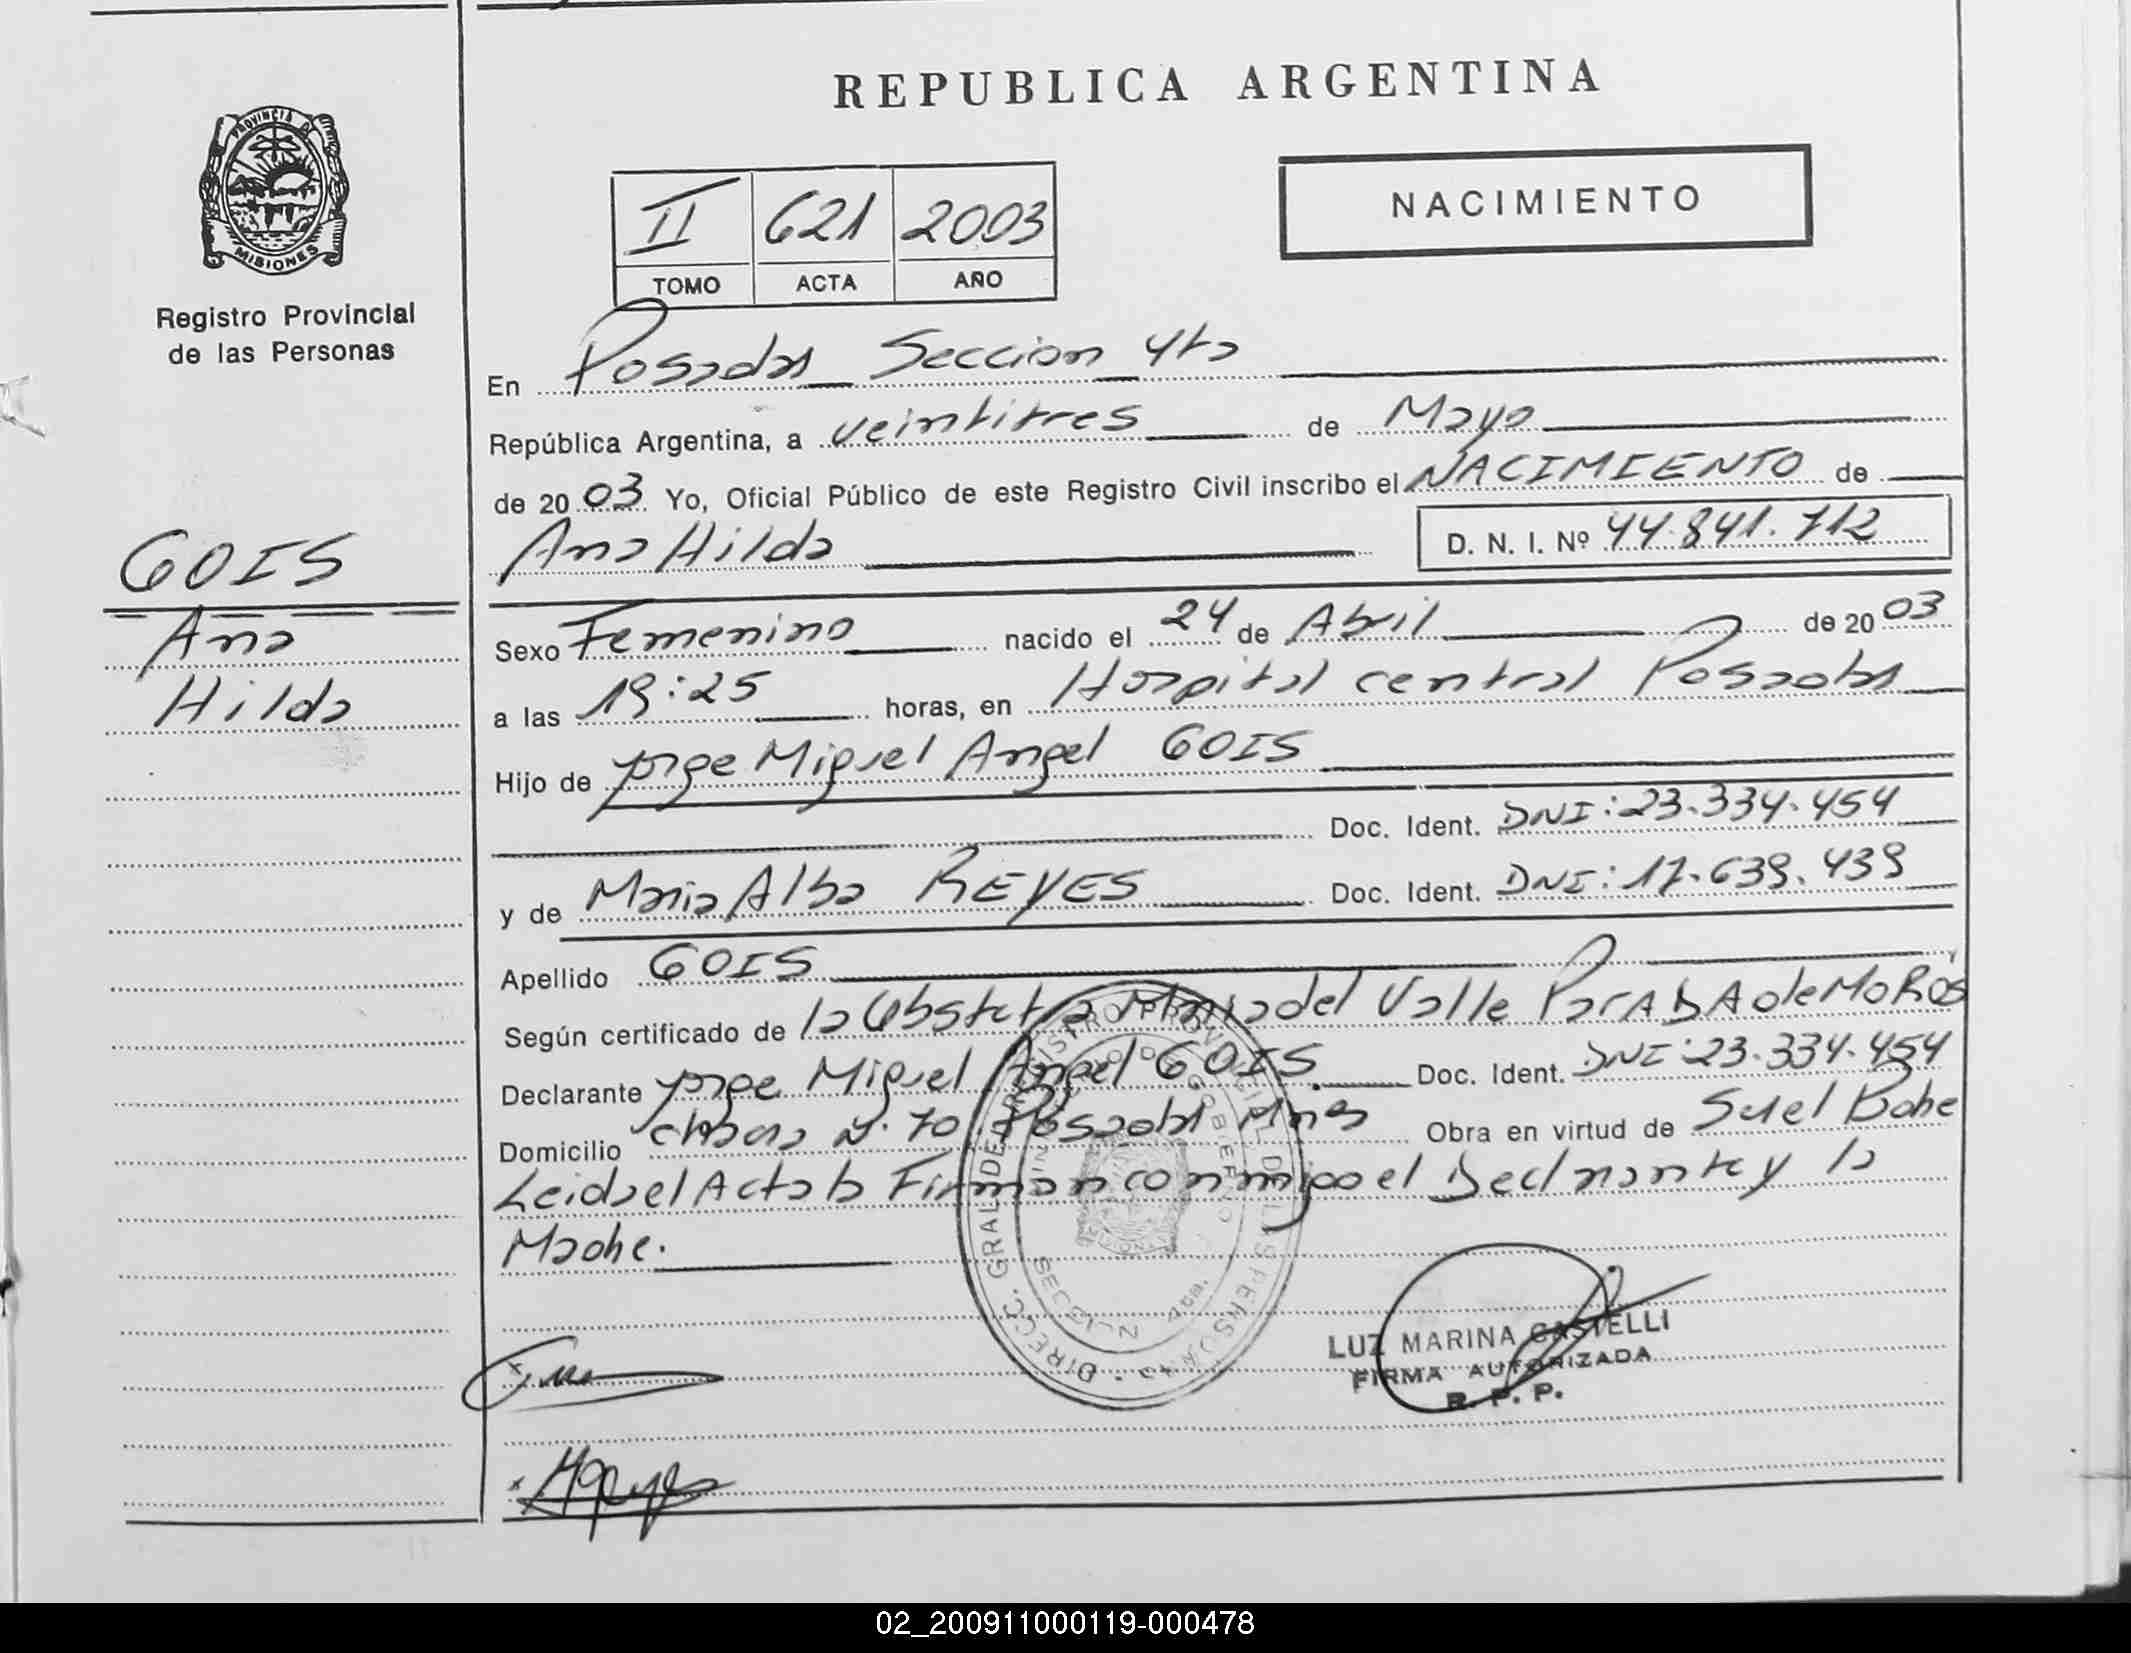 REPUBLICA ARGENTINA
PROVINCIA D MISIONES
Registro Provincial
de las Personas
II 621 2003
TOMO ACTA AÑO
NACIMIENTO
En Posadas Seccion 4ta
República Argentina, a veintitres de Mayo
de 2003 Yo, Oficial Público de este Registro Civil inscribo el NACIMIENTO de
Ana Hilda D. N. I. Nº 44.841.712
GOIS
Ana
Hilda
Sexo Femenino nacido el 24 de Abril de 2003
a las 19:25 horas, en Hospital central Posadas
Hijo de Jorge Miguel Angel GOIS
Doc. Ident. DNI: 23.334.454
y de Maria Alba REYES Doc. Ident. DNI: 17.639.439
Apellido GOIS
Según certificado de la Obstetra Maria del Valle ParABA de MoRos
Declarante Jorge Miguel Angel GOIS Doc. Ident. DNI: 23.334.454
Domicilio chacra N. 70 Posadas Mnes Obra en virtud de Ser el Padre
Leida el Acta la Firman conmigo el Declarante y la
Madre.
DIRECC. GRAL. DE REGISTRO PROVINCIAL DE LAS PERSONAS
MINISTERIO DE GOBIERNO
SECCION 4ta.
LUZ MARINA CASTELLI
FIRMA AUTORIZADA
R. P. P.
02_200911000119-000478